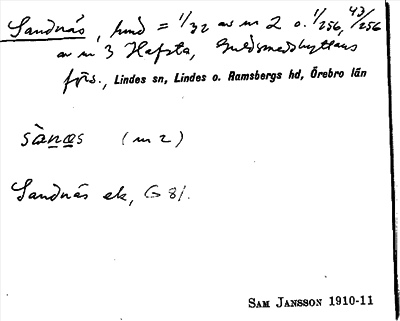 Sandnäs, hmd = 1/32 av nr 2 o. 1/256, 43/256
av nr 3 Hafsta, Guldsmedshyttans
förs., Lindes sn, Lindes o. Ramsbergs hd, Örebro län
sànæs (nr 2)
Sandnäs ek, G 81.
SAM JANSSON 1910-11